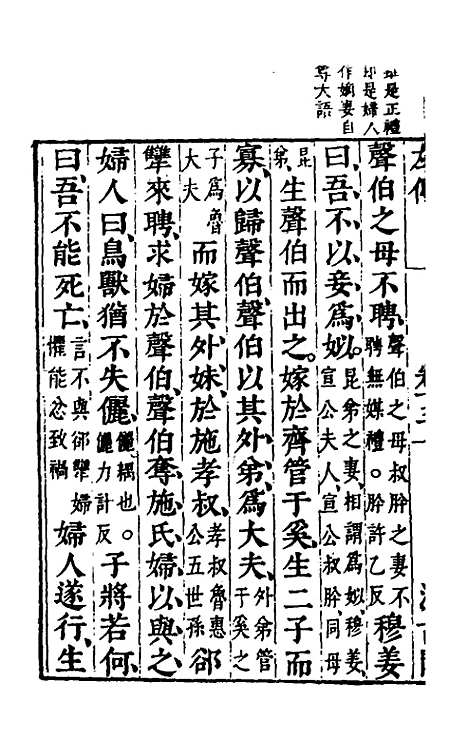 是正禮
是婦人
作姒妻自
尊大語
聲伯之母不聘、聲伯之母叔肸之妻不聘無媒禮○肸許乙反穆姜
曰、吾不以妾爲姒。昆弟之妻、相謂爲姒、穆姜、宣公夫人、宣公叔肸、同母
昆弟生聲伯而出之。嫁於齊管于奚、生二子而
寡、以歸聲伯、聲伯以其外弟、爲大夫、外弟管于奚之
子爲魯大夫而嫁其外妹、於施孝叔、孝叔魯惠公五世孫郤
犫來聘、求婦於聲伯、聲伯奪施氏婦、以與之、
婦人曰、鳥獸猶不失儷、儷耦也○儷力計反子將若何、
曰、吾不能死亡、言不與郤犫婦懼能忿致禍婦人遂行、生